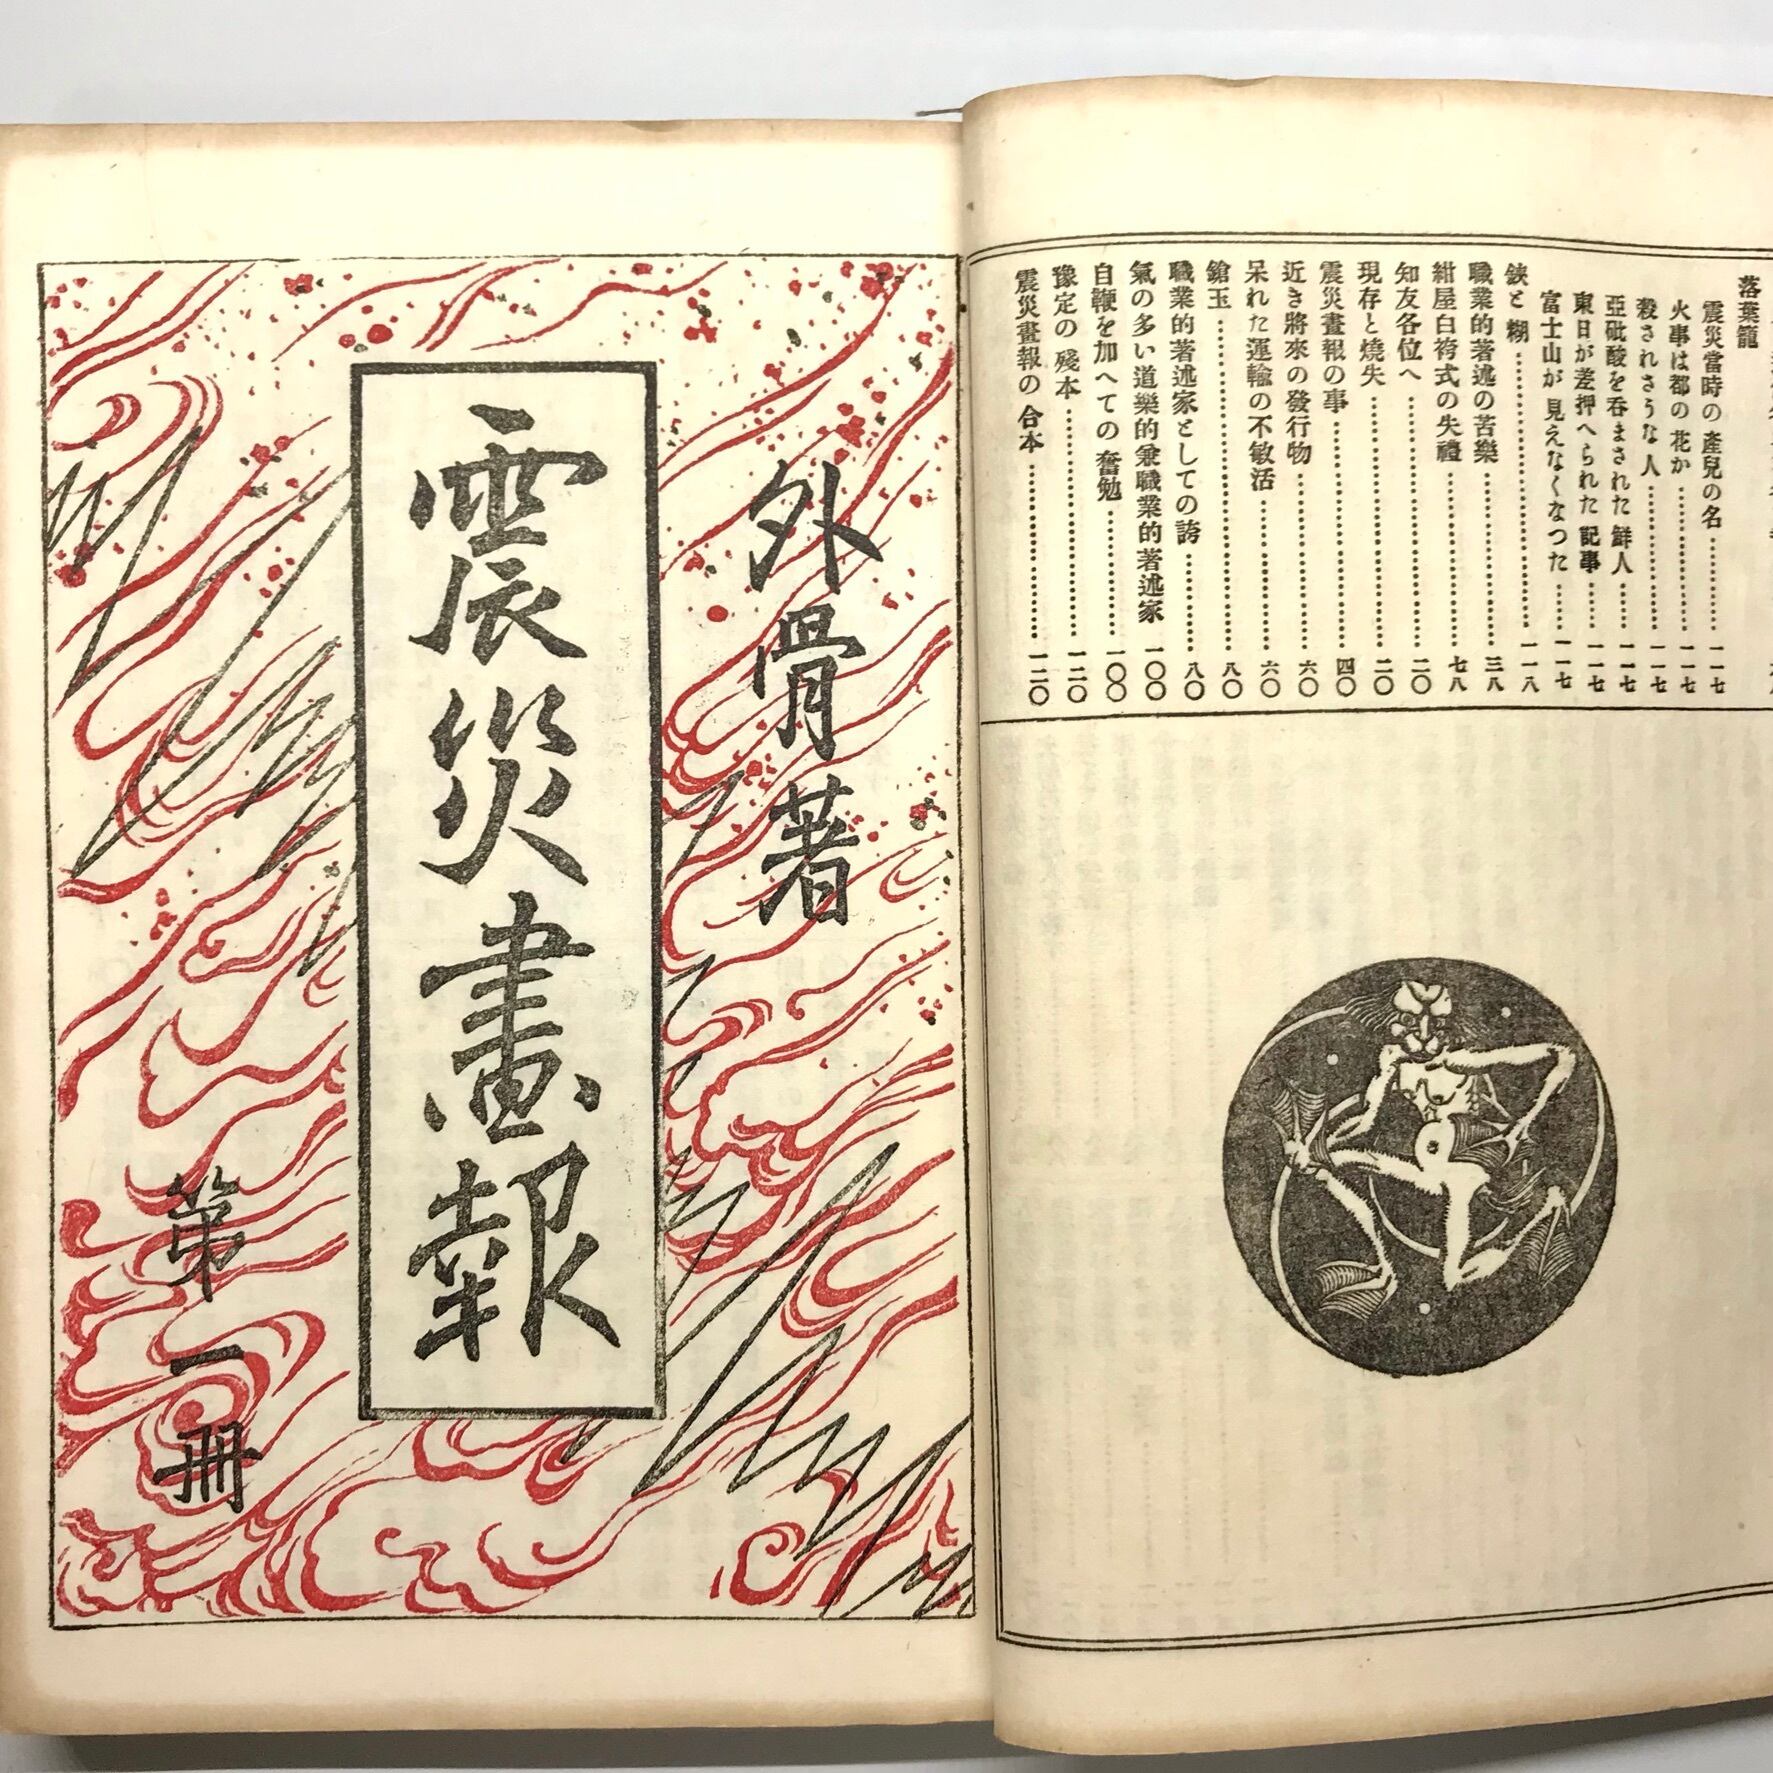 落葉籠
震災當時の產兒の名……一一七
火事は都の花か……一一七
殺されさうな人……一一七
亞砒酸を呑まされた鮮人……一一七
東日が差押へられた記事……一一七
富士山が見えなくなつた……一一七
鋏と糊……一一八
職業的著述の苦樂……三八
紺屋白袴式の失禮……七八
知友各位へ……二〇
現存と燒失……二〇
震災畫報の事……四〇
近き將來の發行物……六〇
呆れた運輸の不敏活……六〇
鎗玉……八〇
職業的著述家としての誇……八〇
氣の多い道樂的兼職業的著述家 一〇〇
自鞭を加へての奮勉……一〇〇
豫定の殘本……一二〇
震災畫報の合本……一二〇
外骨著
震災畫報
第一冊